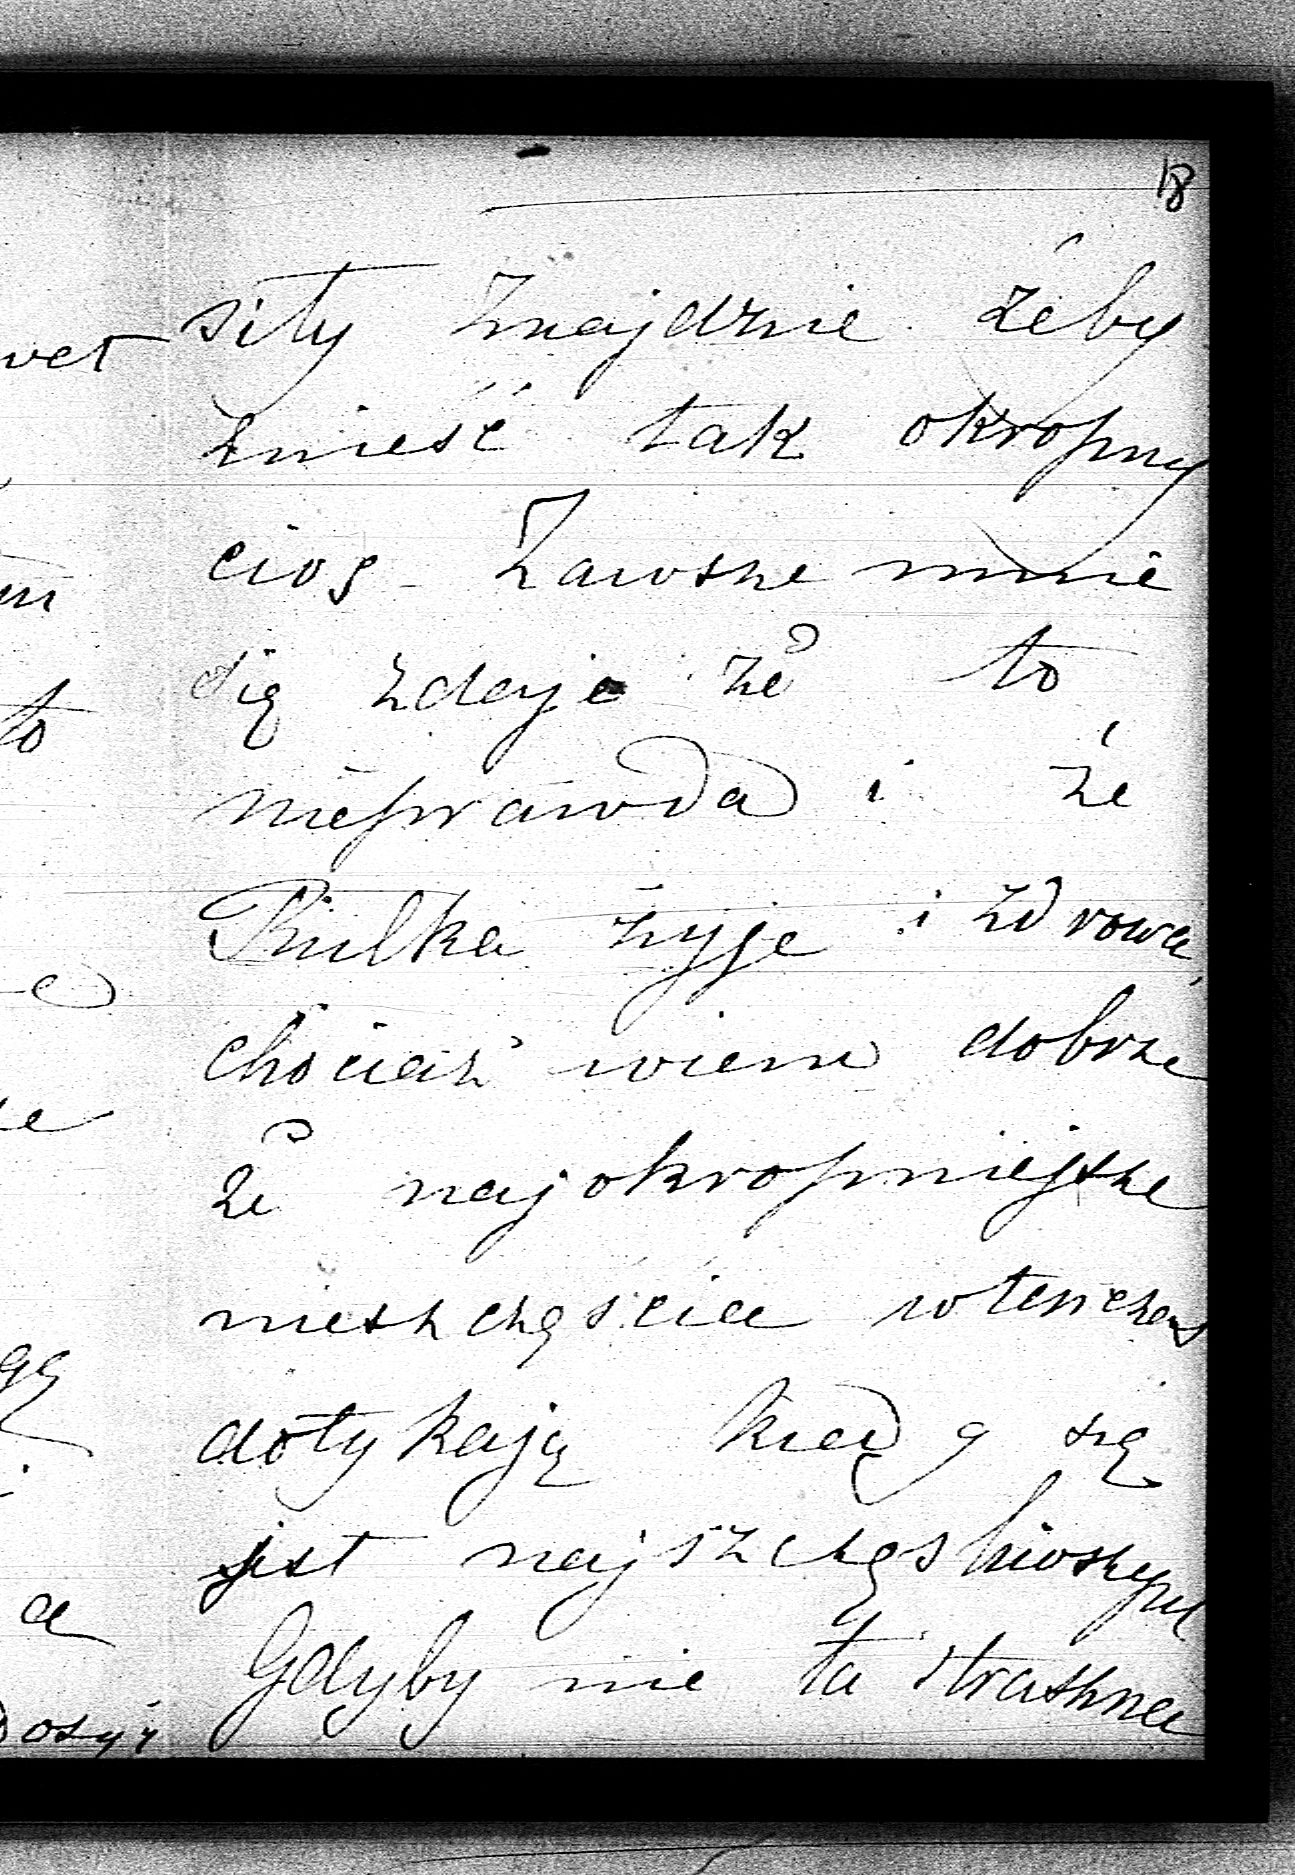 18
siły znajdzie żeby
znieść tak okropny
cios - Zawsze mnie
się zdaje że to
nieprawda i że
żyje i zdrowa,
chociaż wiem dobrze
że najokropniejsze
nieszczęścia wtenczas
dotykają kiedy się
jest najszczęśliwszym
Gdyby nie ta straszna